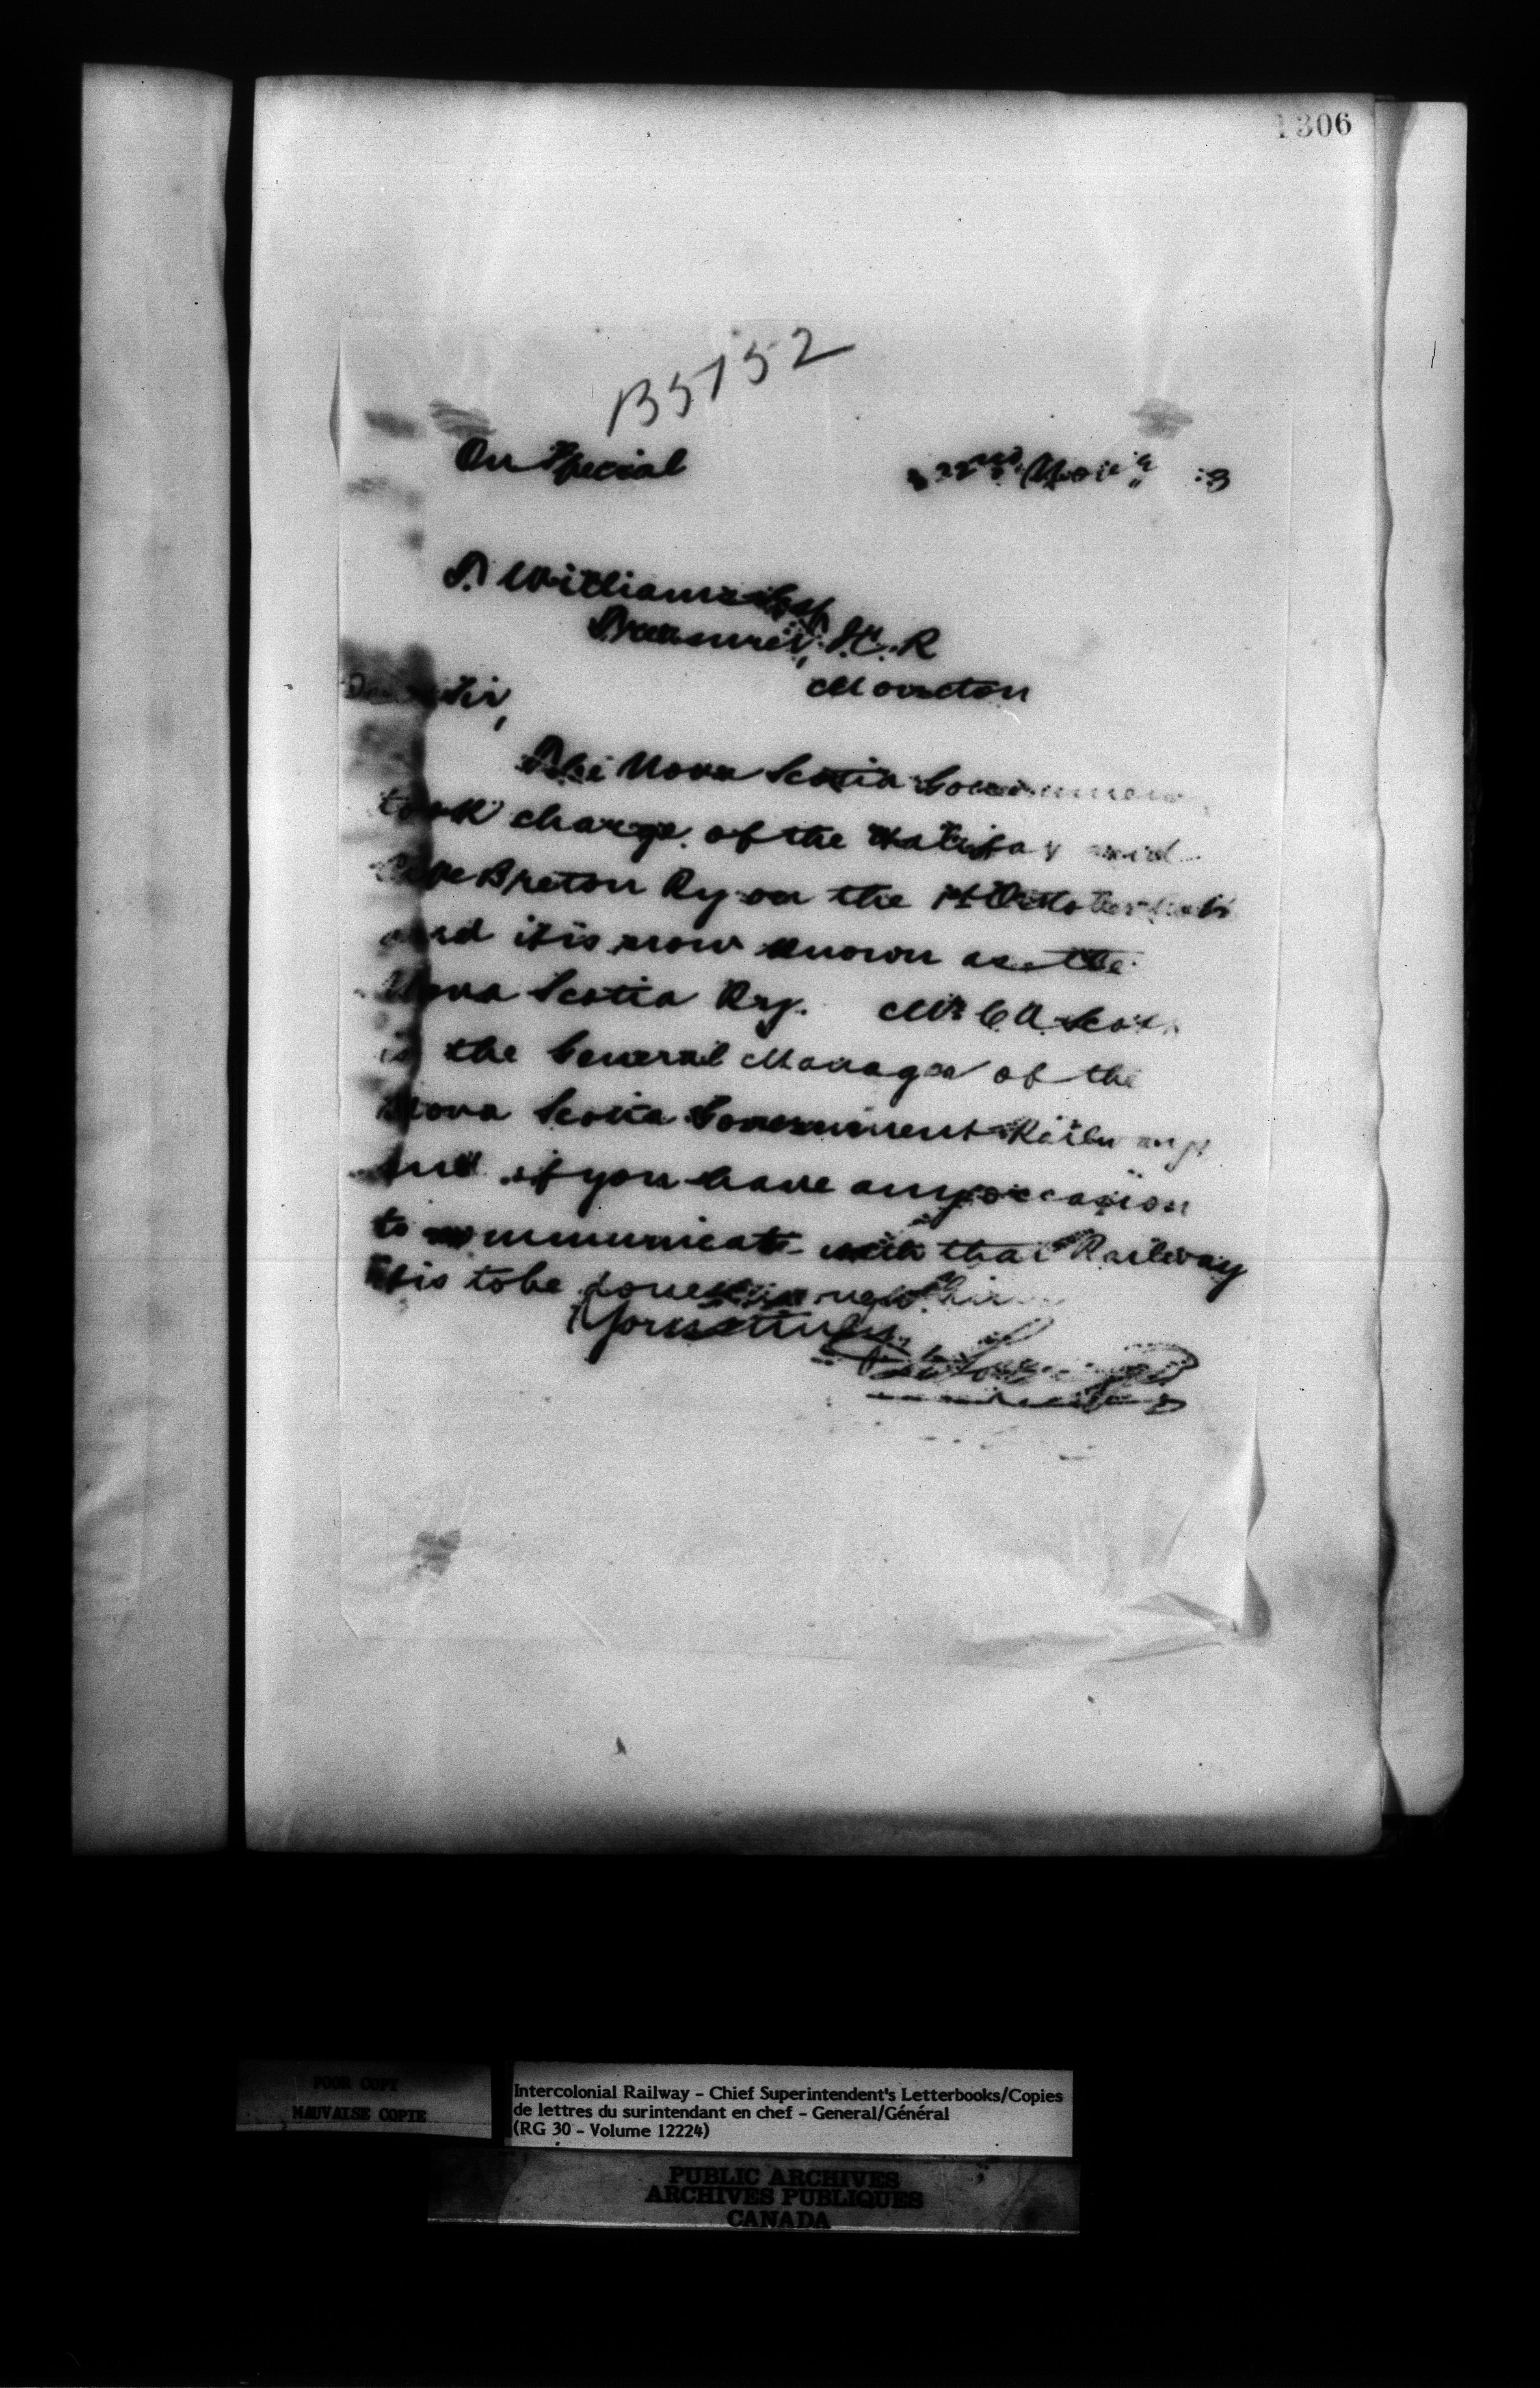 1306
B5152
On Special 22nd Nov. 3
T. Williams Esq
Treasurer, I.C.R
Moncton
Dear Sir,
The Nova Scotia Government
took charge of the Halifax and
Cape Breton Ry on the 1st October
and it is now known as the
Nova Scotia Ry. Mr C A Scott
is the General Manager of the
Nova Scotia Government Railways
and if you have any occasion
to communicate with that Railway
it is to be done through him
Yours truly
POOR COPY
MAUVAISE COPIE
Intercolonial Railway - Chief Superintendent's Letterbooks/Copies
de lettres du surintendant en chef - General/Général
(RG 30 - Volume 12224)
PUBLIC ARCHIVES
ARCHIVES PUBLIQUES
CANADA